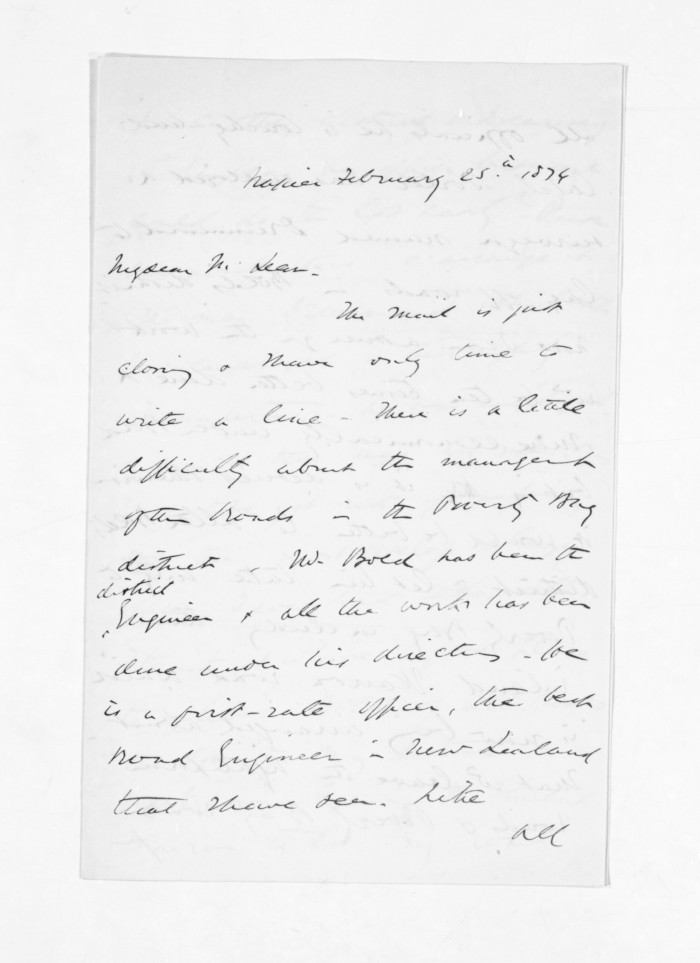 Napier February 25.th 1874
My dear McLean -
The mail is just
closing & I have only time to
write a line - There is a little
difficulty about the management
of the roads in the Poverty Bay
district. Mr Bold has been the
district
Engineer & all the works has been
done under his direction - he
is a first-rate officer, the best
road Engineer in New Zealand
that I have seen. Like
all